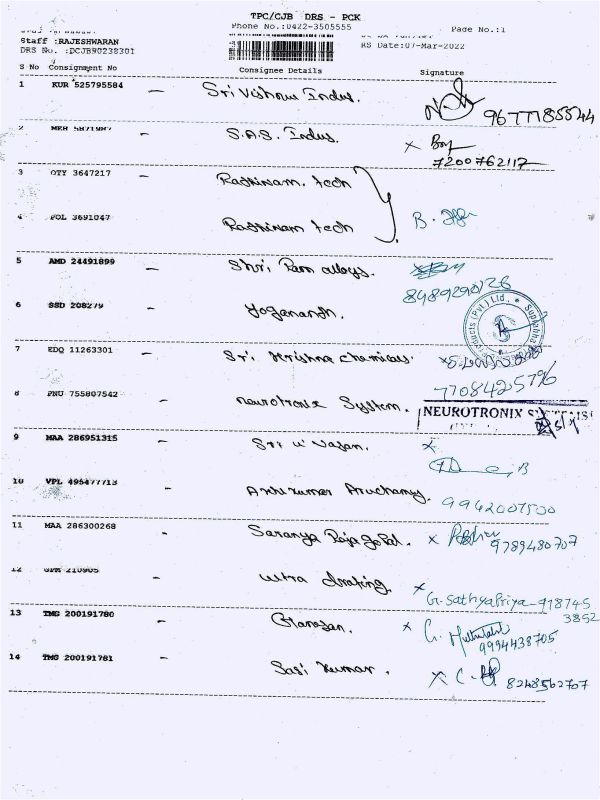 TPC/CJB DRS - PCK
Phone No.:0422-3505555
Page No.:1
Staff :RAJESHWARAN
DRS No. :DCJB90238301
RS Date:07-Mar-2022
S No Consignment No Consignee Details Signature
1 KUR 525795584 - Sri Vishnu Indus. 9677785544
2 MER 5871987 - S.A.S. Indus. x Boy
7200762117
3 OTY 3647217 - Rathinam tech
4 POL 3691047 - Rathinam tech B.
5 AMD 24491899 - Shri Ram alloys.
8489290126
6 SSD 208279 - Yoganandh.
Products (Pvt) Ltd.,
7 EDQ 11263301 - Sri Krishna chemicals.
7708425796
8 PNU 755807542 - neurotronix System. NEUROTRONIX SYSTEMS
9 MAA 286951315 - Sri u' Vasan. x
10 VPL 495477713 - 9942007500
11 MAA 286300268 - Saranya Raja Gopal. x 9789480707
12 210905 - x G. Sathyapriya - 918745
3852
13 TMG 200191780 - x G.
9994438705
14 TMG 200191781 - Sasi Kumar. x C. 8248562707